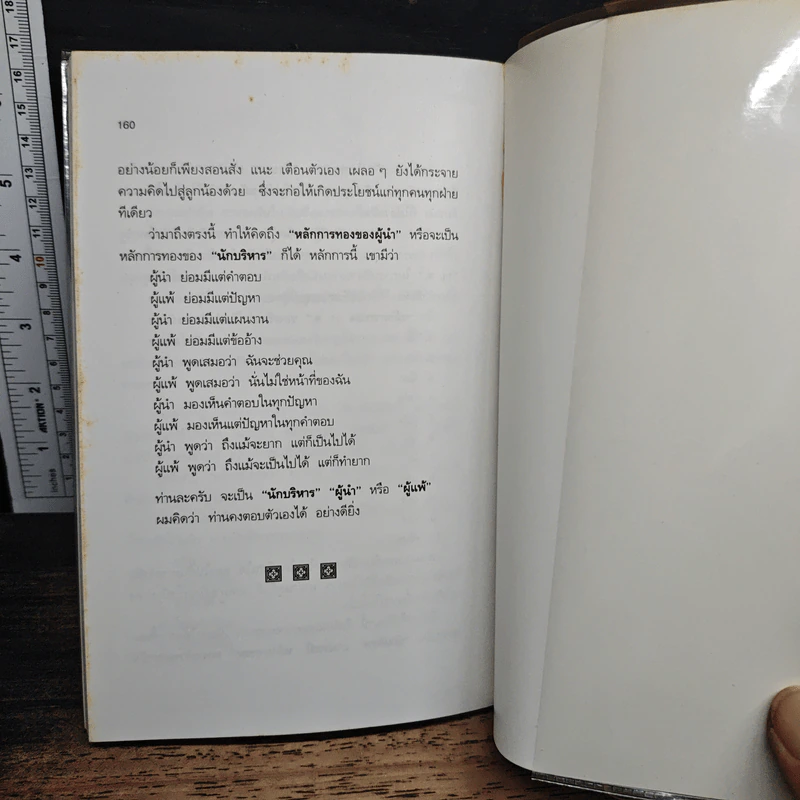 160
อย่างน้อยก็เพียงสอนสั่ง แนะ เตือนตัวเอง เผลอ ๆ ยังได้กระจาย
ความคิดไปสู่ลูกน้องด้วย ซึ่งจะก่อให้เกิดประโยชน์แก่ทุกคนทุกฝ่าย
ทีเดียว
ว่ามาถึงตรงนี้ ทำให้คิดถึง “หลักการทองของผู้นำ” หรือจะเป็น
หลักการทองของ “นักบริหาร” ก็ได้ หลักการนี้ เขามีว่า
ผู้นำ ย่อมมีแต่คำตอบ
ผู้แพ้ ย่อมมีแต่ปัญหา
ผู้นำ ย่อมมีแต่แผนงาน
ผู้แพ้ ย่อมมีแต่ข้ออ้าง
ผู้นำ พูดเสมอว่า ฉันจะช่วยคุณ
ผู้แพ้ พูดเสมอว่า นั่นไม่ใช่หน้าที่ของฉัน
ผู้นำ มองเห็นคำตอบในทุกปัญหา
ผู้แพ้ มองเห็นแต่ปัญหาในทุกคำตอบ
ผู้นำ พูดว่า ถึงแม้จะยาก แต่ก็เป็นไปได้
ผู้แพ้ พูดว่า ถึงแม้จะเป็นไปได้ แต่ก็ทำยาก
ท่านละครับ จะเป็น “นักบริหาร” “ผู้นำ” หรือ “ผู้แพ้”
ผมคิดว่า ท่านคงตอบตัวเองได้ อย่างดียิ่ง
18
17
16
15
14
13
12
11
10
9
8
7
6
5
4
3
2
1
5
4
3
2
1
inches